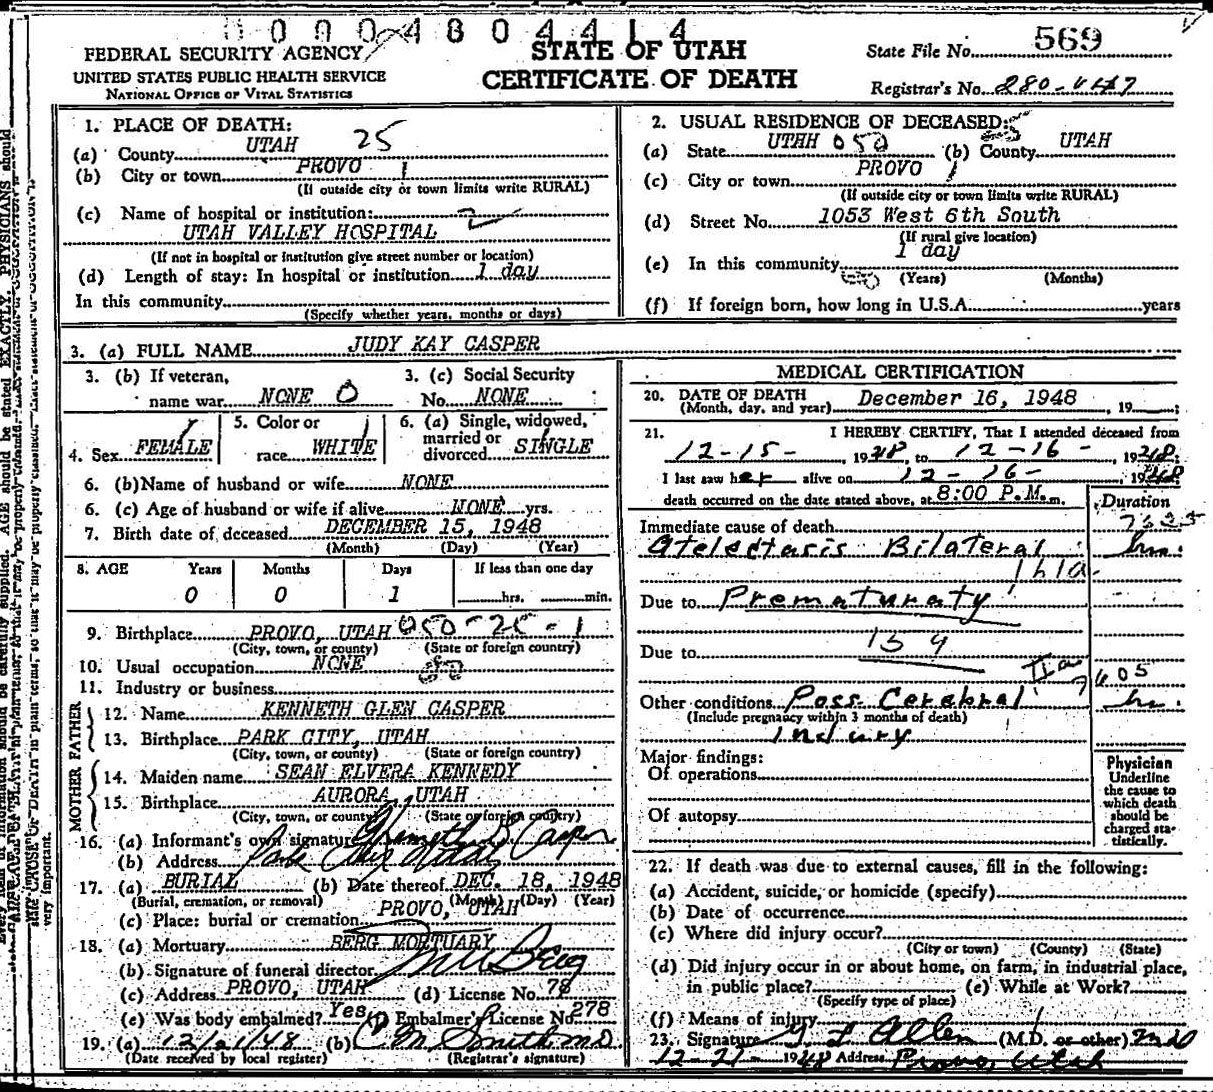 0004804414
FEDERAL SECURITY AGENCY
UNITED STATES PUBLIC HEALTH SERVICE
NATIONAL OFFICE OF VITAL STATISTICS
STATE OF UTAH
CERTIFICATE OF DEATH
State File No. 569
Registrar's No. 280-447
1. PLACE OF DEATH:
(a) County UTAH 25
(b) City or town PROVO 1
(If outside city or town limits write RURAL)
(c) Name of hospital or institution: 2
UTAH VALLEY HOSPITAL
(If not in hospital or institution give street number or location)
(d) Length of stay: In hospital or institution 1 day
In this community
(Specify whether years, months or days)
2. USUAL RESIDENCE OF DECEASED:
(a) State UTAH 050 (b) County UTAH
(c) City or town PROVO 1
(If outside city or town limits write RURAL)
(d) Street No. 1053 West 6th South
(If rural give location)
(e) In this community 1 day
(Years) (Months)
(f) If foreign born, how long in U.S.A. years
3. (a) FULL NAME JUDY KAY CASPER
3. (b) If veteran, name war NONE 0
3. (c) Social Security No. NONE
4. Sex FEMALE
5. Color or race WHITE
6. (a) Single, widowed, married or divorced SINGLE
6. (b) Name of husband or wife NONE
6. (c) Age of husband or wife if alive NONE yrs.
7. Birth date of deceased DECEMBER 15, 1948
(Month) (Day) (Year)
8. AGE Years Months Days If less than one day
0 0 1 hrs. min.
9. Birthplace PROVO, UTAH 050-25-1
(City, town, or county) (State or foreign country)
10. Usual occupation NONE
11. Industry or business
FATHER
12. Name KENNETH GLEN CASPER
13. Birthplace PARK CITY, UTAH
(City, town, or county) (State or foreign country)
MOTHER
14. Maiden name SEAN ELVERA KENNEDY
15. Birthplace AURORA, UTAH
(City, town, or county) (State or foreign country)
16. (a) Informant's own signature Kenneth G. Casper
(b) Address Park City Utah
17. (a) BURIAL (b) Date thereof DEC. 18, 1948
(Burial, cremation, or removal) (Month) (Day) (Year)
(c) Place: burial or cremation PROVO, UTAH
18. (a) Mortuary BERG MORTUARY
(b) Signature of funeral director Berg
(c) Address PROVO, UTAH (d) License No. 78
(e) Was body embalmed? Yes (f) Embalmer's License No. 278
19. (a) 12/21/48 (b) C M Smith M D
(Date received by local register) (Registrar's signature)
MEDICAL CERTIFICATION
20. DATE OF DEATH
(Month, day, and year) December 16, 1948, 19 ;
21. I HEREBY CERTIFY, That I attended deceased from
12-15-, 1948, to 12-16-, 1948;
I last saw her alive on 12-16-, 1948
death occurred on the date stated above, at 8:00 P.M. m.
Duration
Immediate cause of death
Atelectasis Bilateral hrs.
Due to Prematuraty
Due to 159
Other conditions Poss. Cerebral
(Include pregnancy within 3 months of death)
Indury
Major findings:
Of operations
Of autopsy
Physician
Underline
the cause to
which death
should be
charged sta-
tistically.
22. If death was due to external causes, fill in the following:
(a) Accident, suicide, or homicide (specify)
(b) Date of occurrence
(c) Where did injury occur?
(City or town) (County) (State)
(d) Did injury occur in or about home, on farm, in industrial place,
in public place? (e) While at Work?
(Specify type of place)
(f) Means of injury
23. Signature Allen (M.D. or other)
12-21- 1948 Address Provo, Utah